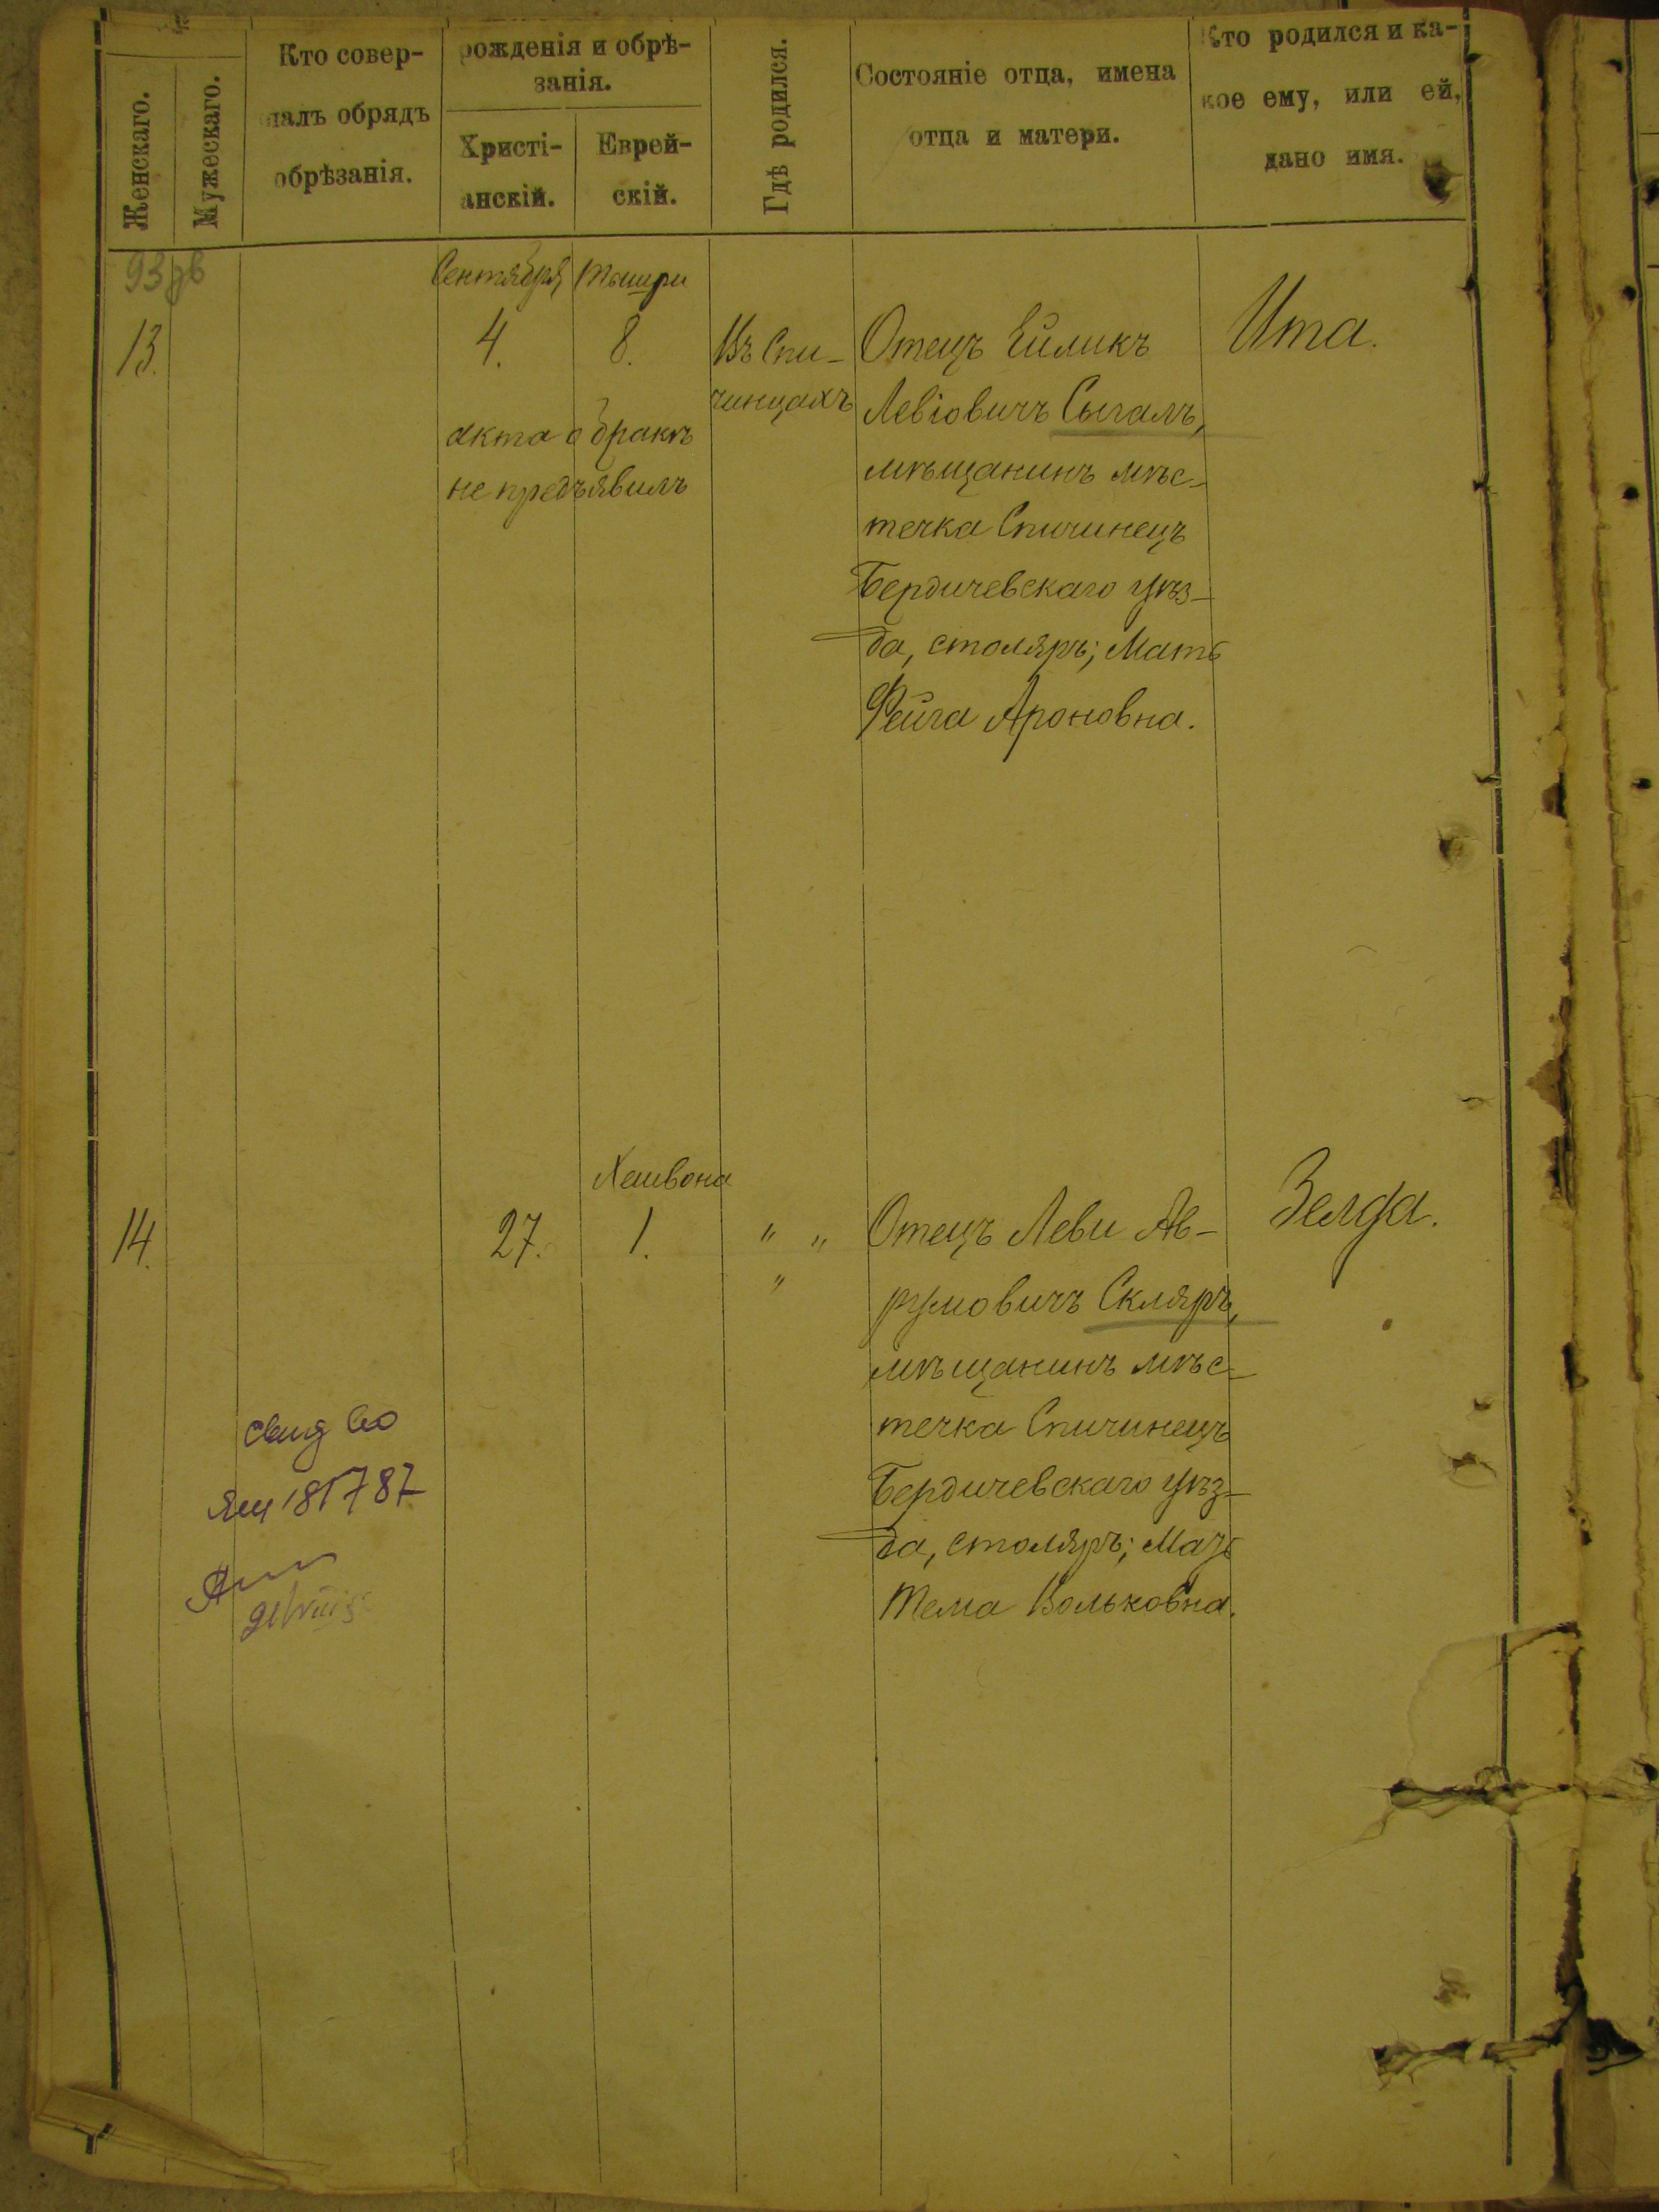 Женскаго.
Мужескаго.
Кто совер-
шалъ обрядъ
обрѣзанія.
рожденія и обрѣ-
занія.
Христі-
анскій.
Еврей-
скій.
Гдѣ родился.
Состояніе отца, имена
отца и матери.
Кто родился и ка-
кое ему, или ей,
дано имя.
Сентября Тишри
13. 4. 8.
Въ Спи-
чинцахъ
акта о бракѣ
не предъявилъ
Отецъ Ейликъ
Левіовичъ Сыгалъ,
мѣщанинъ мѣс-
течка Спичинецъ
Бердичевскаго уѣз-
да, столяръ; Мать
Фейга Ароновна.
Ита.
Хешвона
14. 27. 1. " "
"
Отецъ Леви Ав-
румовичъ Скляръ,
мѣщанинъ мѣс-
течка Спичинецъ
Бердичевскаго уѣз-
да, столяръ; Мать
Тема Вольковна.
Зелда.